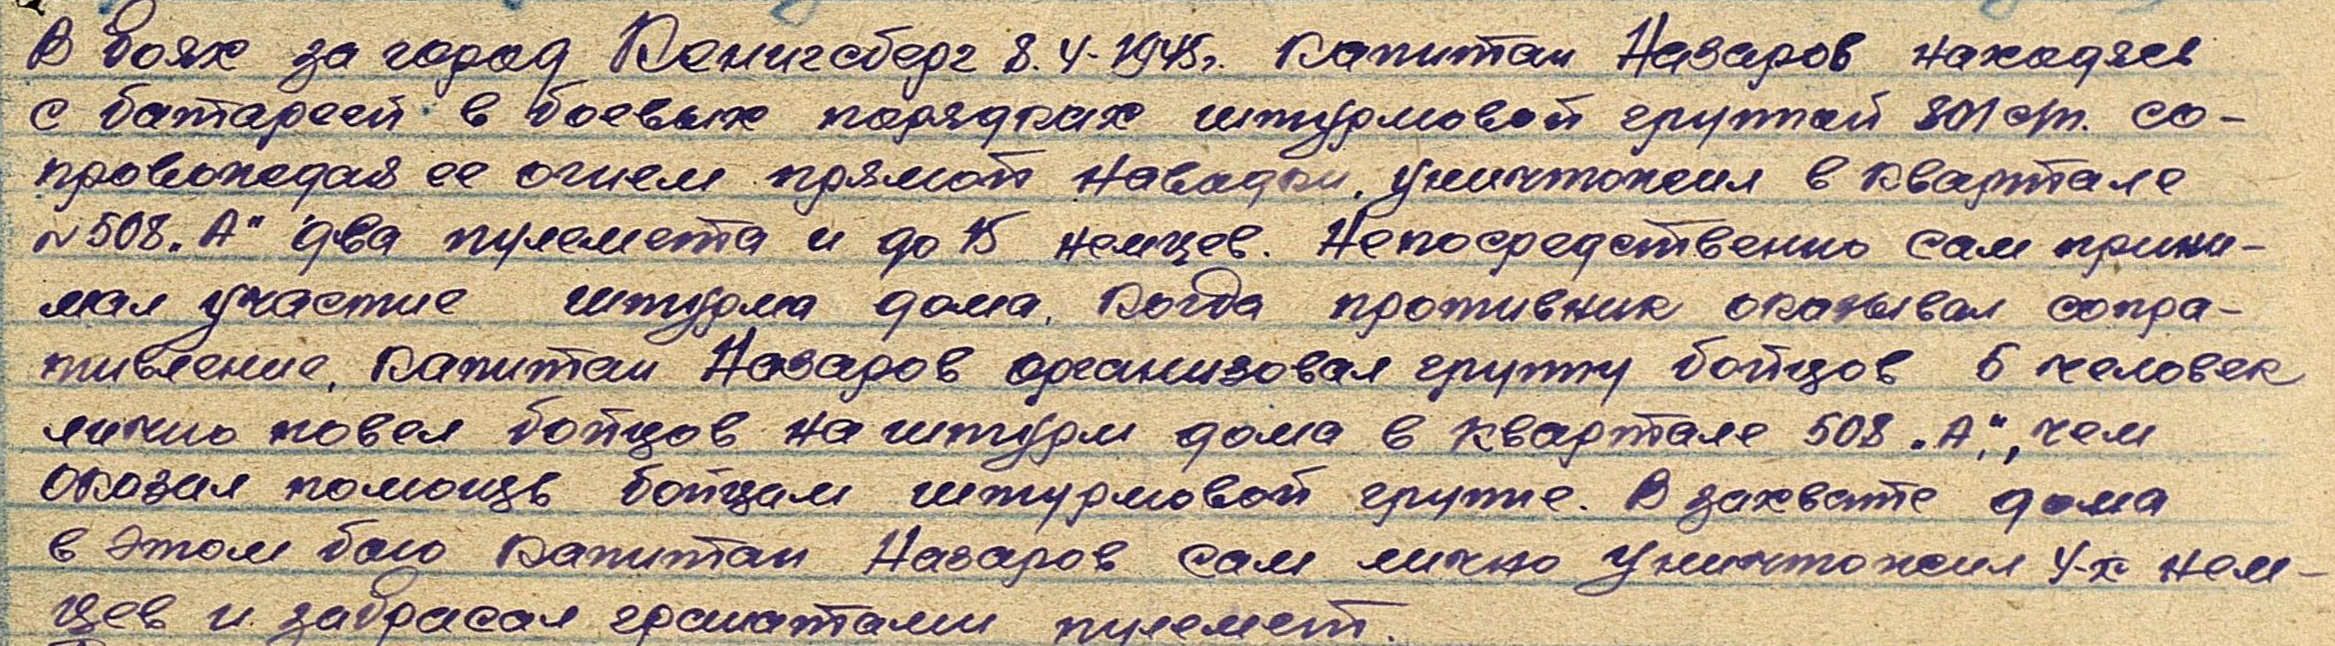 В боях за город Кенигсберг 8.4.1945г. Капитан Назаров находясь
с батареей в боевых порядках штурмовой группой 801 сп. со-
провождая ее огнем прямой наводки, уничтожил в квартале
№508 „А" два пулемета и до 15 немцев. Непосредственно сам прини-
мал участие штурма дома, когда противник оказывал сопра-
тивление, капитан Назаров организовал группу бойцов 5 человек
лично повел бойцов на штурм дома в квартале 508 „А", чем
оказал помощь бойцам штурмовой группе. В захвате дома
в этом бою капитан Назаров сам лично уничтожил 4-х нем-
цев и забрасал гранатами пулемет.